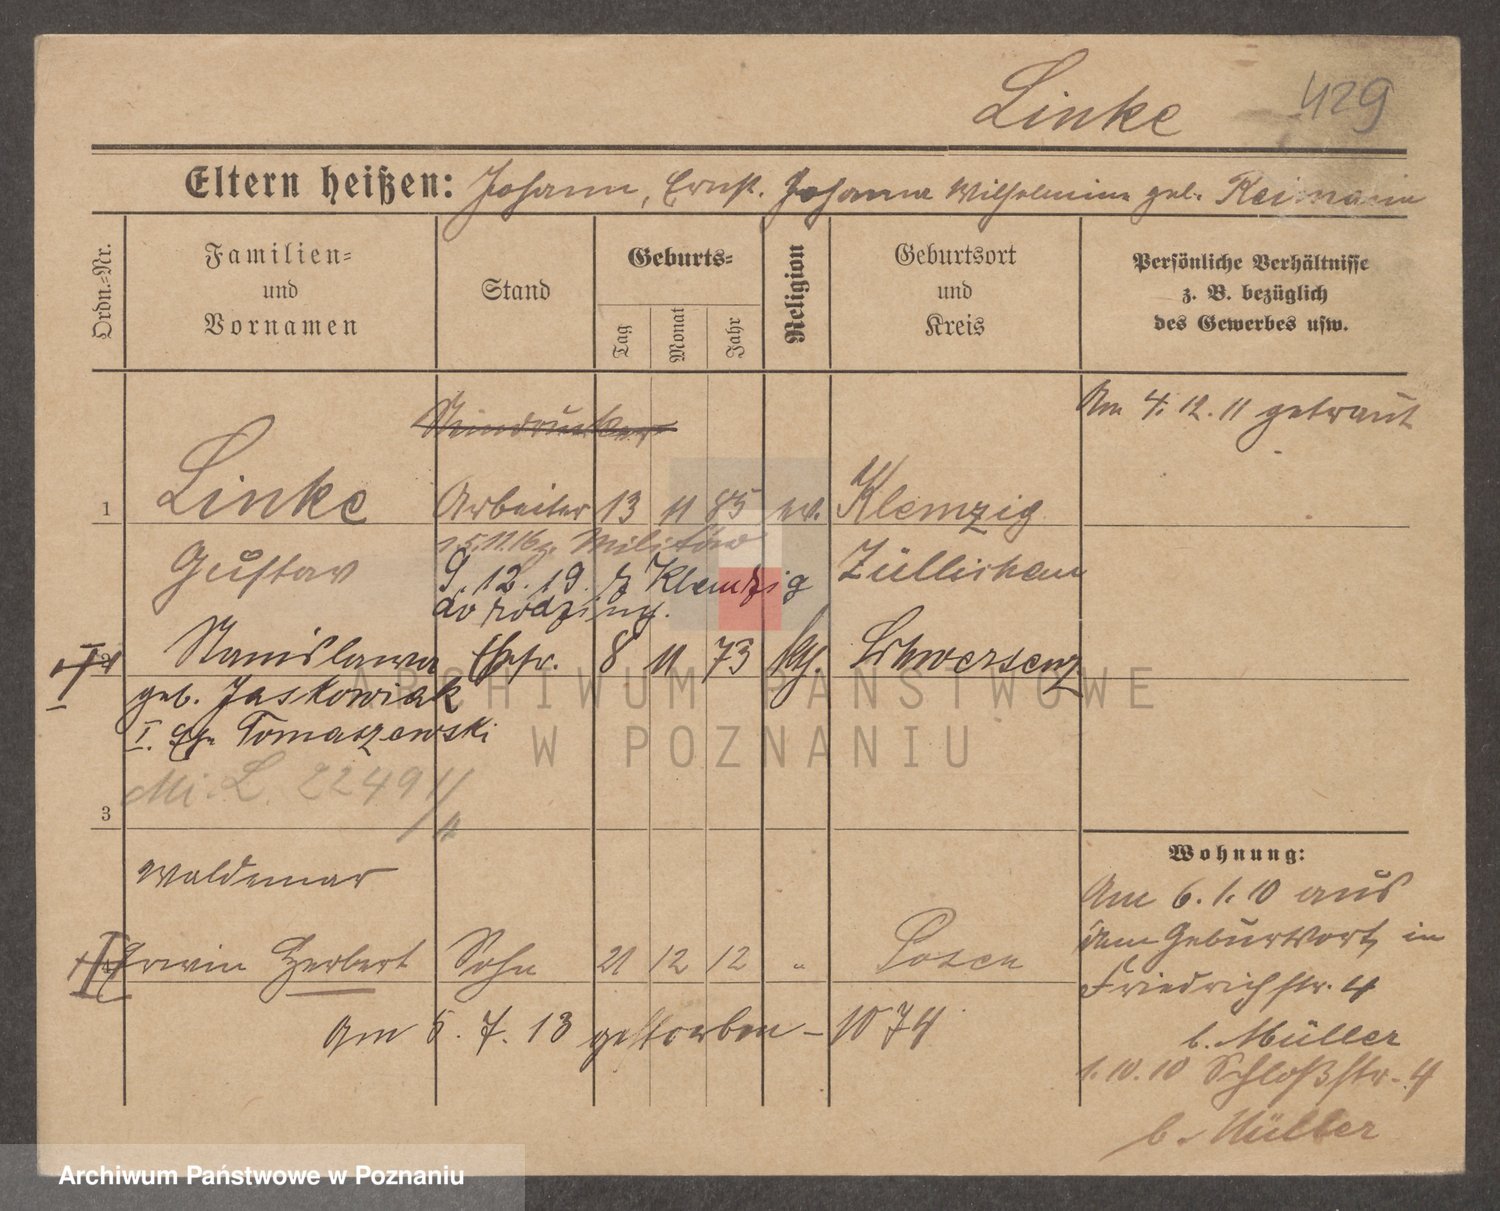 Linke 429
Eltern heißen: Johann, Ernst. Johanna Wilhelmine geb. Reimann
Ordn.-Nr.
Familien-
und
Vornamen
Stand
Geburts-
Tag
Monat
Jahr
Religion
Geburtsort
und
Kreis
Persönliche Verhältnisse
z. B. bezüglich
des Gewerbes usw.
Am 4. 12. 11 getraut
Steindrucker
1 Linke Arbeiter 13 11 85 ev. Klemzig
15.11.16 z. Militär
Gustav Züllichau
9. 12. 19 z Klemzig
do rodziny.
2 Stanislawa Ehefr. 8 11 73 kth. Schwersenz
geb. Jaskowiak
I. Tomaszewski
Mi. L. 22491/
3
Waldemar
4 Erwin Herbert Sohn 21 12 12 " Posen
Am 5. 7. 13 gestorben – 1074
Wohnung:
Am 6. 1. 10 aus
dem Geburtsort, in
Friedrichstr. 4
b. Müller
1. 10. 10 Schloßstr. 4
b. Müller
ARCHIWUM PAŃSTWOWE
W POZNANIU
Archiwum Państwowe w Poznaniu